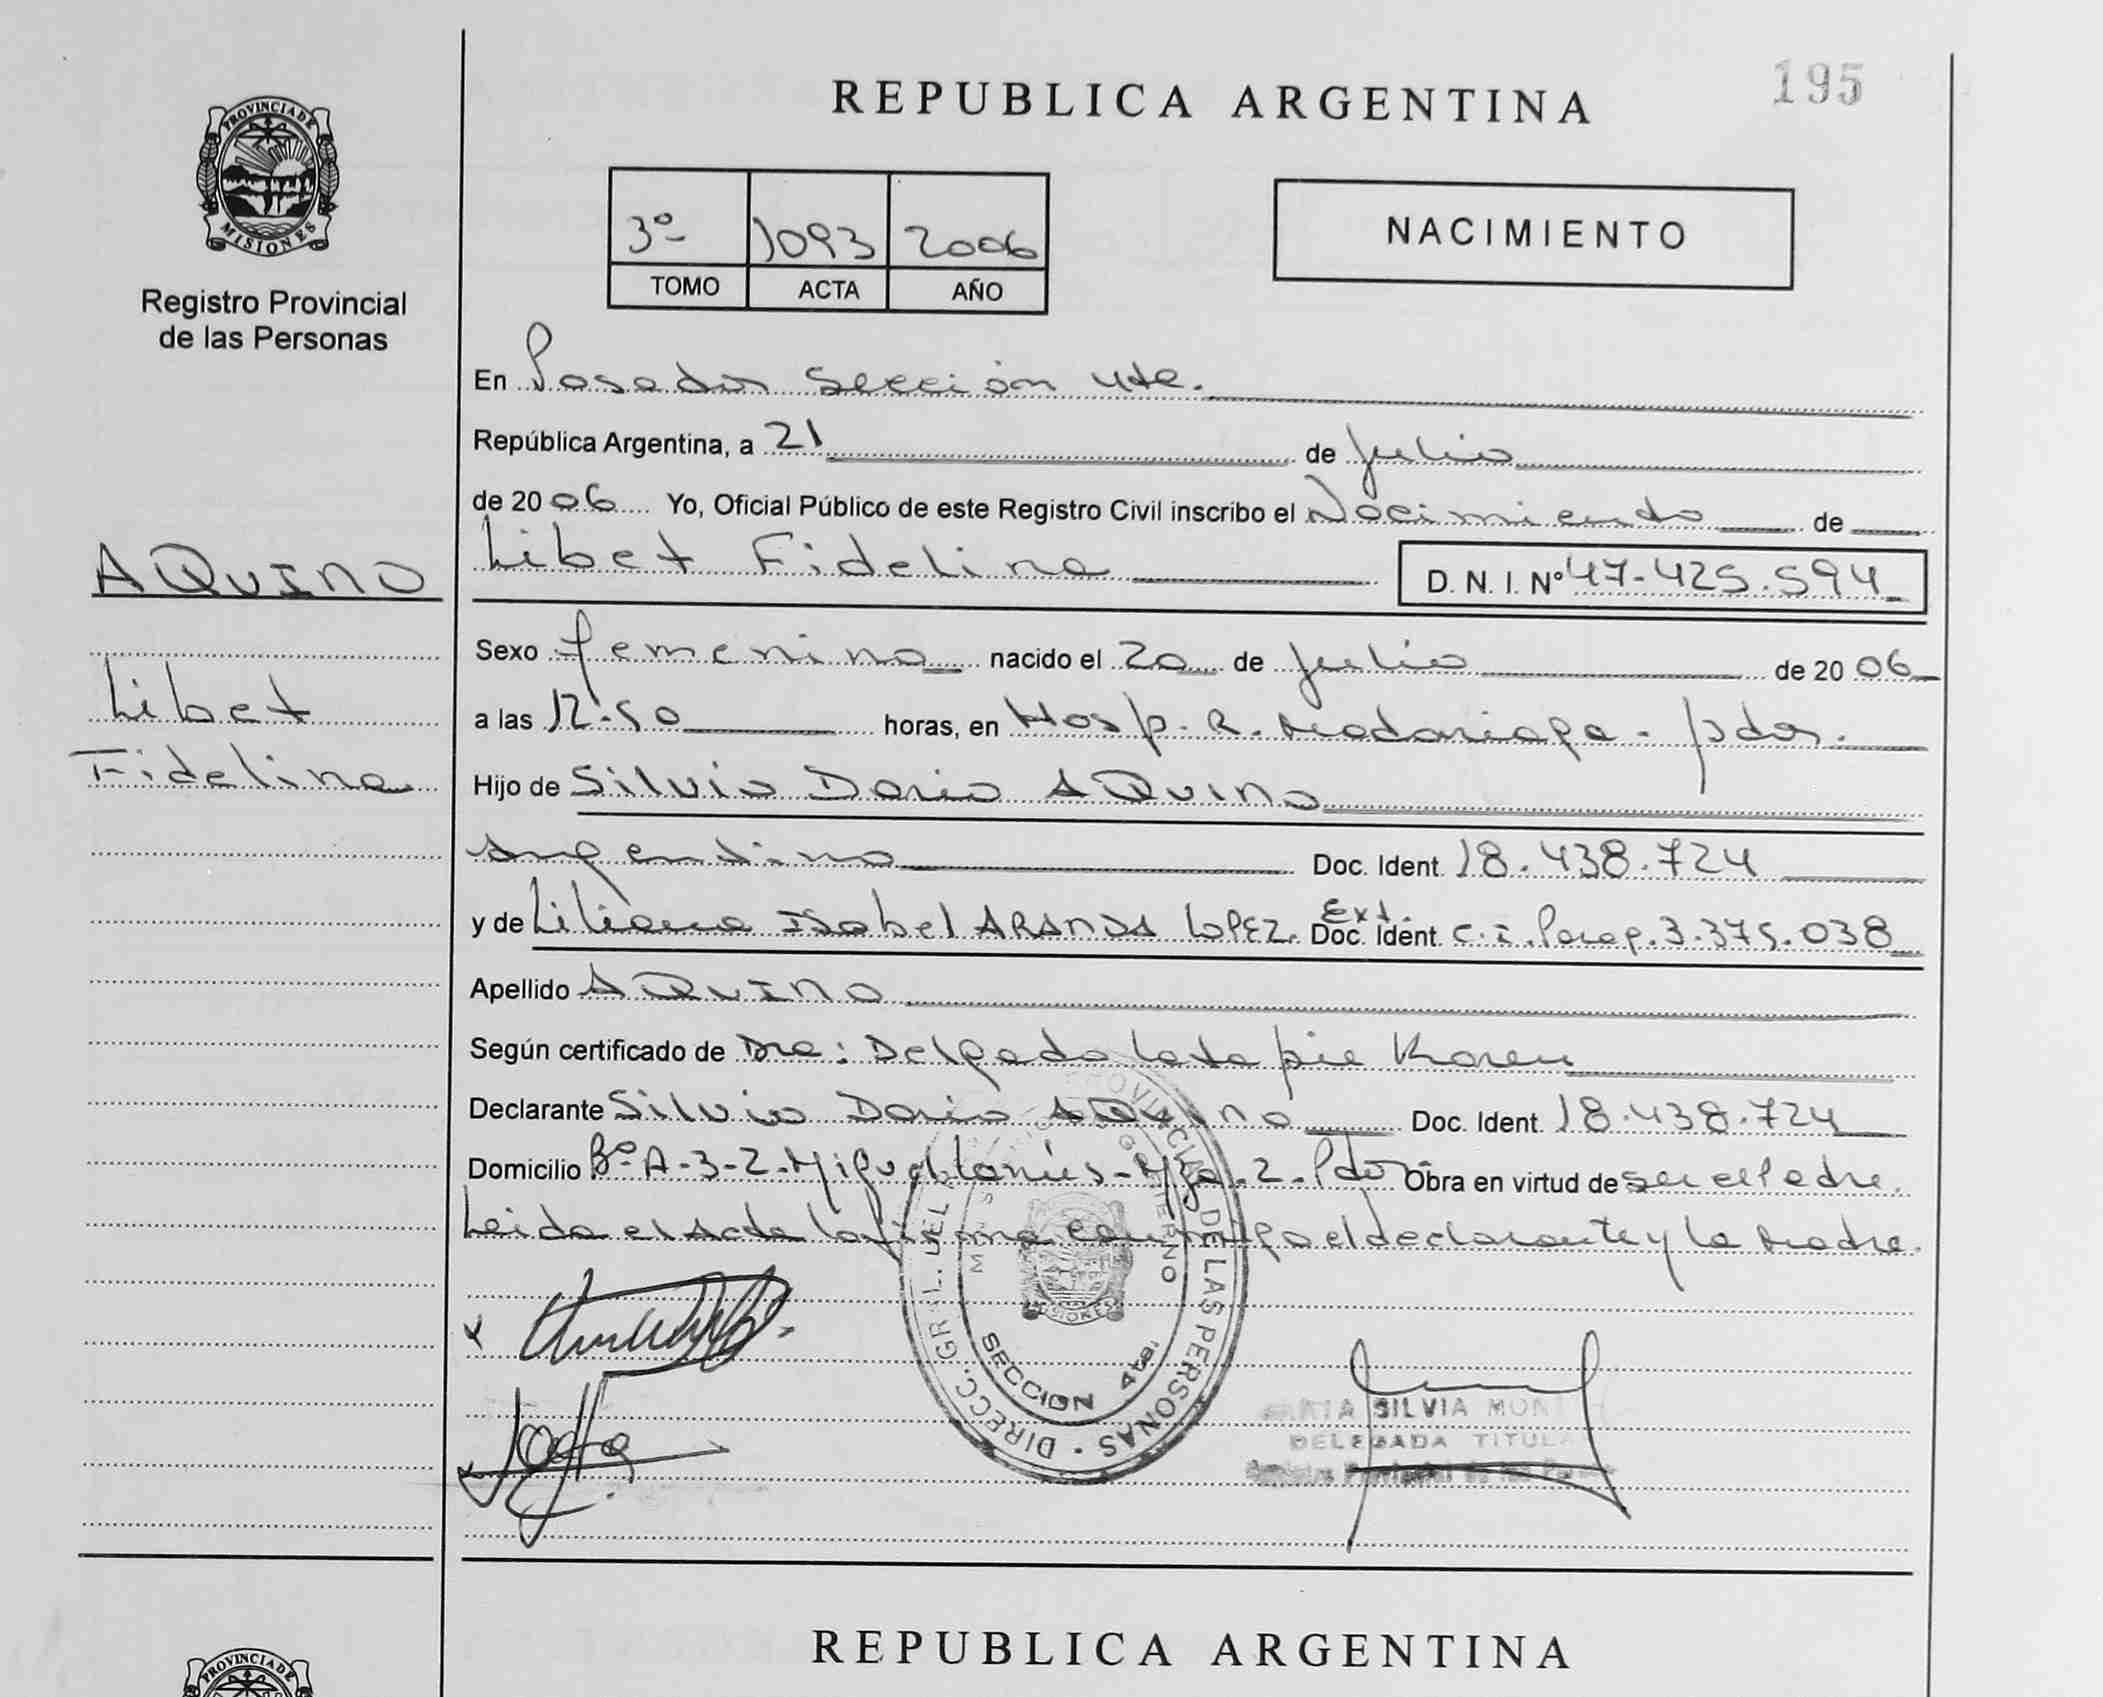 PROVINCIA DE
MISIONES
Registro Provincial
de las Personas
REPUBLICA ARGENTINA
195
3º 1093 2006
TOMO ACTA AÑO
NACIMIENTO
En Posadas Sección 4ta.
República Argentina, a 21 de Julio
de 2006 Yo, Oficial Público de este Registro Civil inscribo el Nacimiento de
AQUINO
Libet Fidelina
D. N. I. Nº 47-425.594
Libet
Fidelina
Sexo femenino nacido el 20 de Julio de 2006
a las 12:50 horas, en Hosp. R. Madariaga. Pdas.
Hijo de Silvio Dario AQUINO
Argentino Doc. Ident. 18.438.724
y de Liliana Isabel ARANDA LOPEZ. Ext. Doc. Ident. C.I. Parag. 3.375.038
Apellido AQUINO
Según certificado de Dra: Delgado Latapie Karen
Declarante Silvio Dario AQUINO Doc. Ident. 18.438.724
Domicilio Bº A-3-2-Miguel Lanús- Mza. 2. Pdas Obra en virtud de ser el Padre.
Leida el Acta la firma conmigo el declarante y la Madre.
DIRECC. GRAL. DEL PROVINCIAL DE LAS PERSONAS
GOBIERNO
MISIONES
SECCION 4ta.
SILVIA
DELEGADA TITULA
Provincial de las
REPUBLICA ARGENTINA
PROVINCIA DE